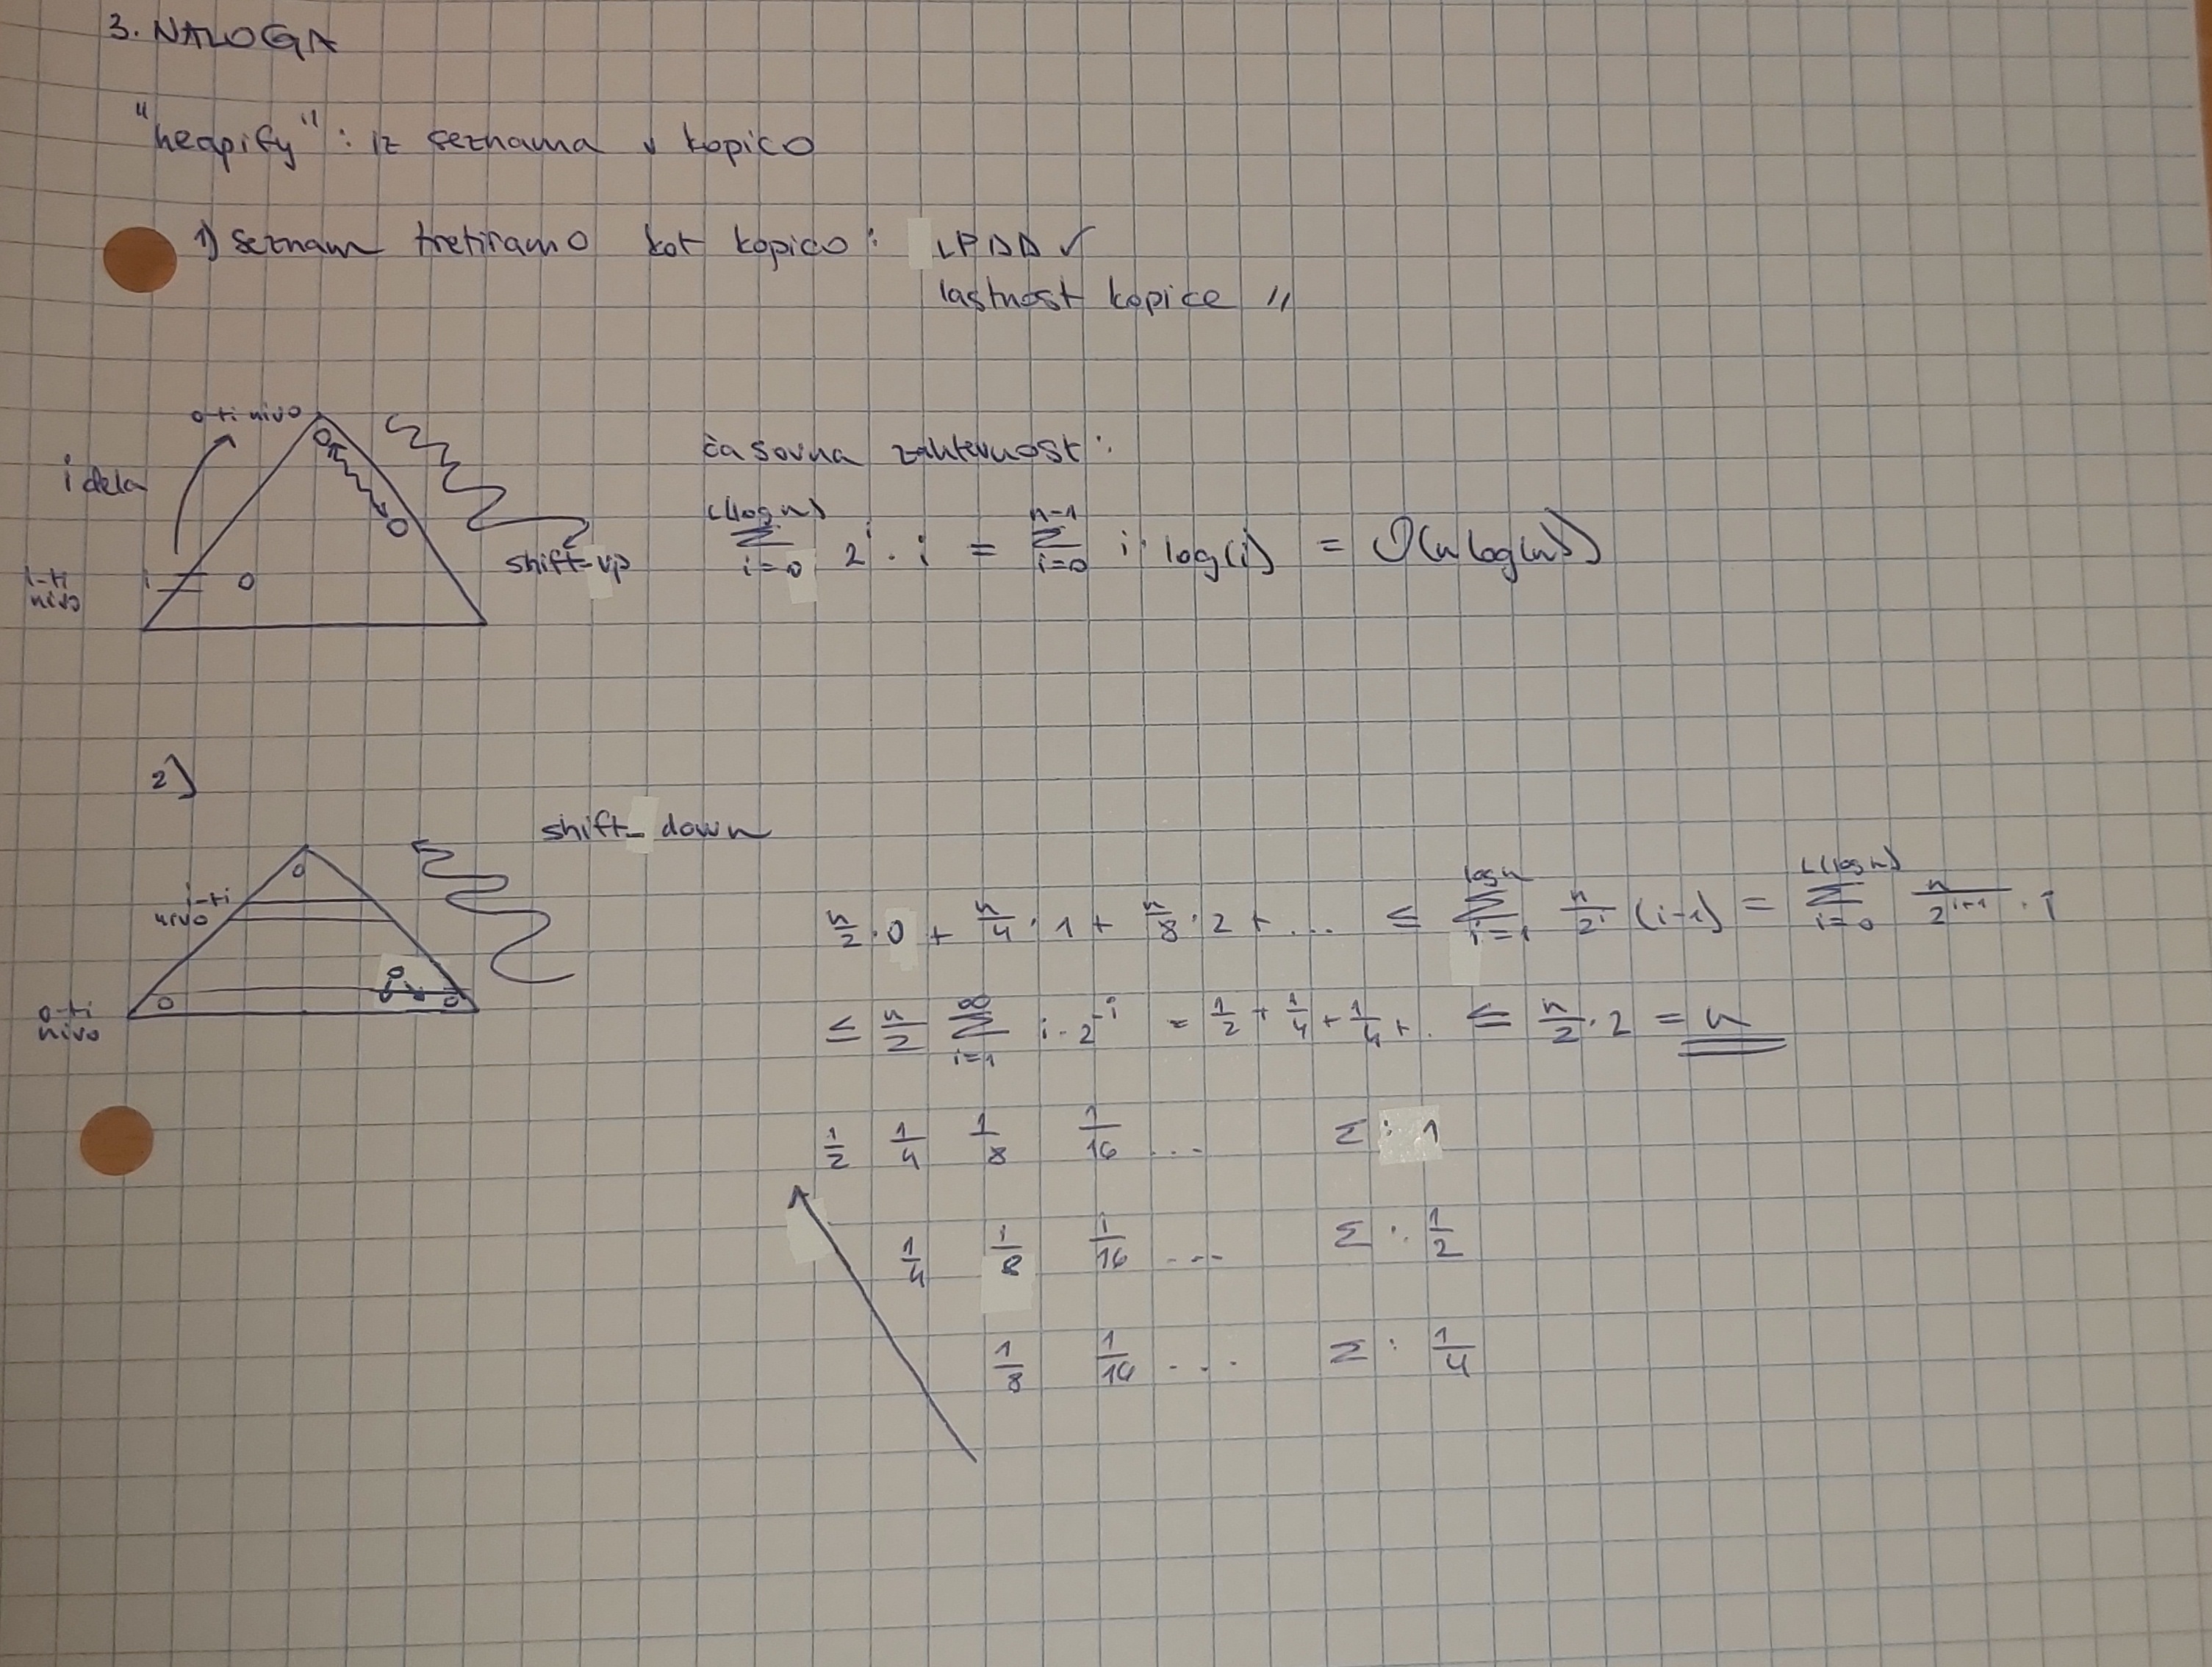 3. NALOGA
"heapify": iz seznama v kopico
1) seznam tretiramo kot kopico: LPDD ✓
lastnost kopice //
0-ti nivo
i dela
i-ti nivo
i
shift-up
časovna zahtevnost:
∑_{i=0}^{⌊log n⌋} 2^i · i = ∑_{i=0}^{n-1} i · log(i) = O(n log(n))
2)
shift_down
i-ti nivo
0-ti nivo
n/2 · 0 + n/4 · 1 + n/8 · 2 + ... ≤ ∑_{i=1}^{log n} n/2^i (i-1) = ∑_{i=0}^{⌊log n⌋} n/2^{i+1} · i
≤ n/2 ∑_{i=1}^{∞} i · 2^{-i} = 1/2 + 1/4 + 1/4 + . ≤ n/2 · 2 = n
1/2 1/4 1/8 1/16 ... Σ: 1
1/4 1/8 1/16 ... Σ: 1/2
1/8 1/16 ... Σ: 1/4